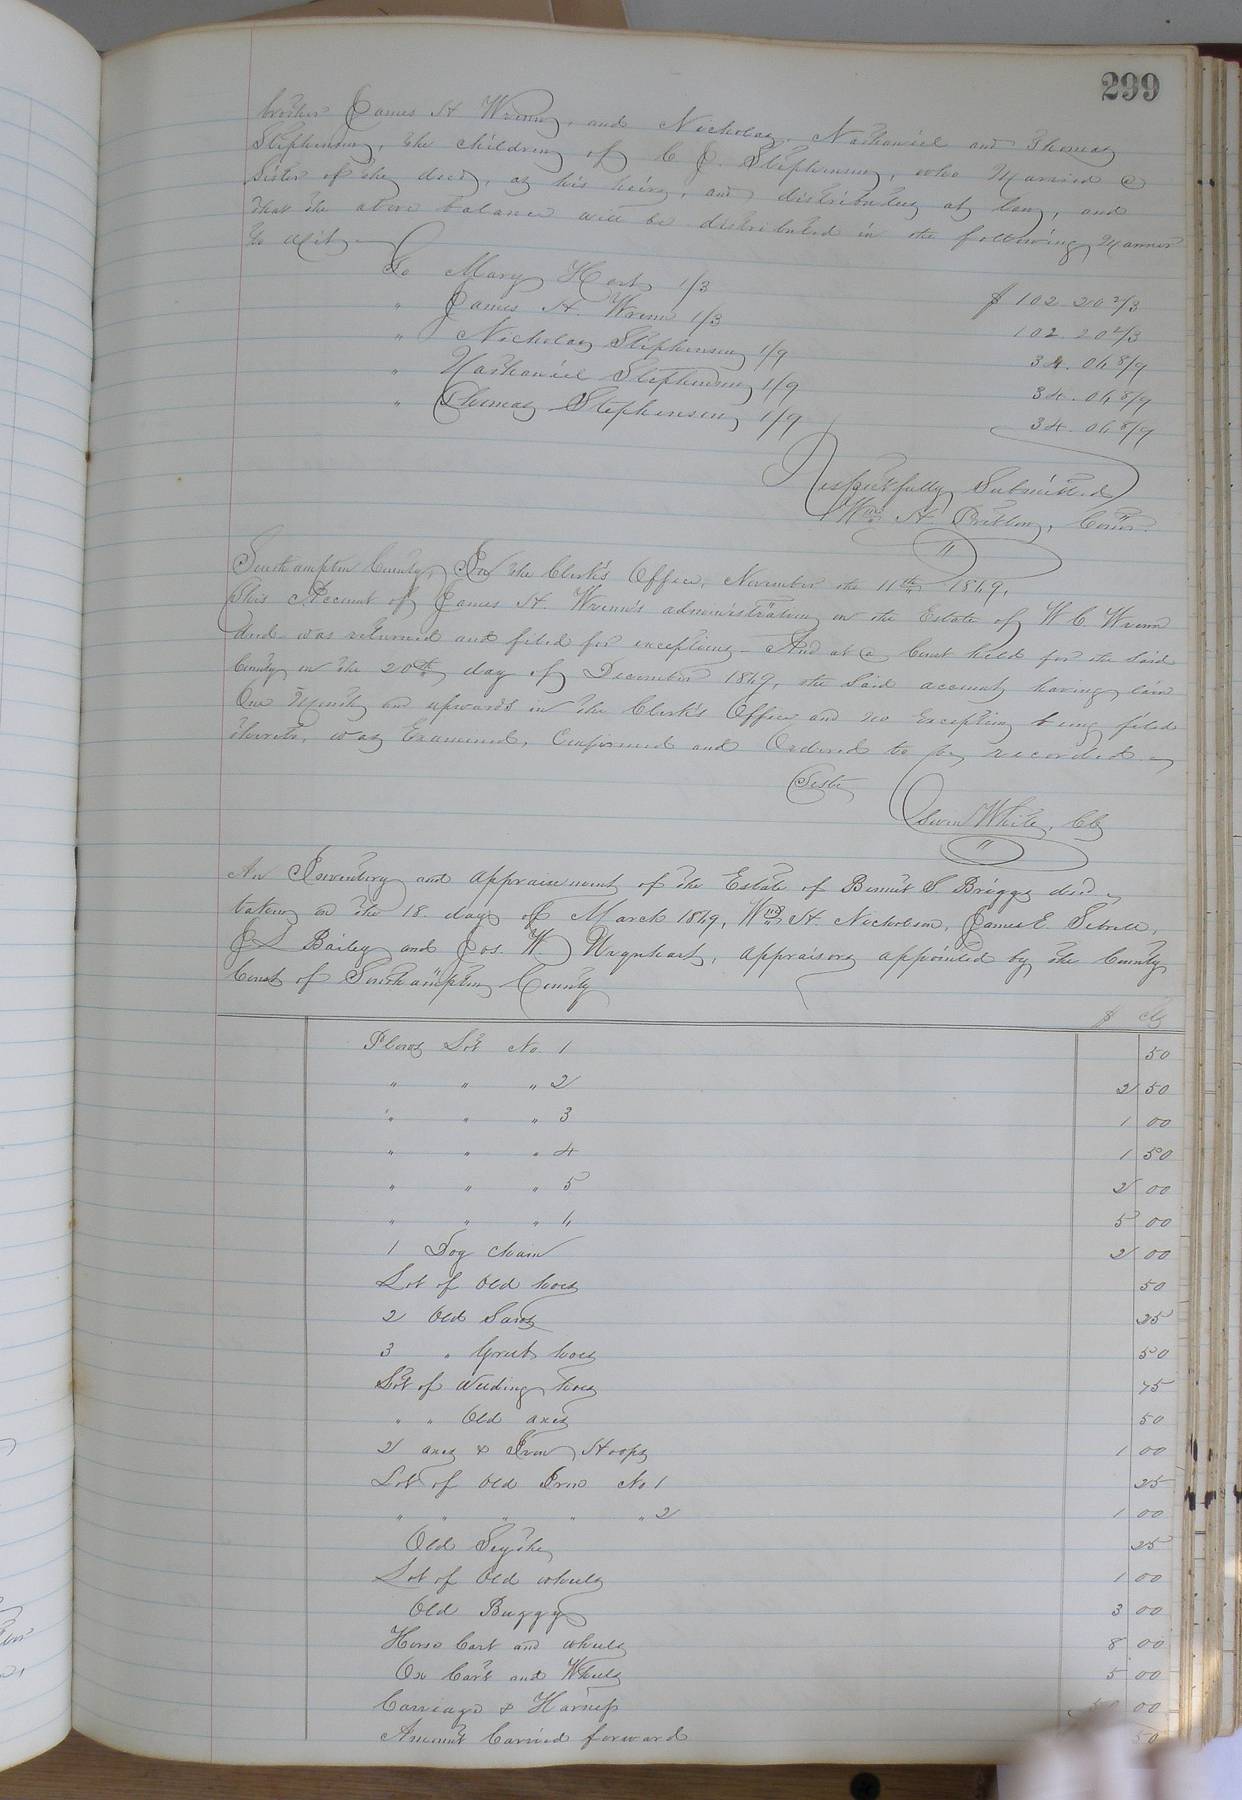 299
brother James H. Wrenn, and Nicholas, Nathaniel and Thomas
Stephenson, the children of C J. Stephenson, who Married a
Sister of the decd, as his heirs, and distributees at law, and
that the above balance will be distributed in the following Manner
To Wit,
To Mary Hart 1/3 $ 102 20 2/3
" James H. Wrenn 1/3 102. 20 2/3
" Nicholas Stephenson 1/9 34. 06 8/9
" Nathaniel Stephenson 1/9 34. 06 8/9
" Thomas Stephenson 1/9 34. 06 8/9
Respectfully Submitted
Wm H Britton, Comr.
Southampton County, In the Clerk's Office, November the 11th 1869,
This Account of James H. Wrenn's administration on the Estate of W C Wrenn
decd was returned and filed for exceptions - And at a Court held for the Said
County on the 20th day of December 1869, the Said account having lain
One Month and upwards in the Clerk's Office and no Exception being filed
thereto, was Examined, Confirmed and Ordered to be recorded
Teste
White, Clk
An Inventory and appraisement of the Estate of Bennet S Briggs decd,
taken on the 18. day of March 1869, Wm H. Nicholson, James E. Sebrell,
J S Bailey and Jos. W. Urquhart, appraisors appointed by the County
Court of Southampton County
$ cts
Plows Lot No. 1 50
" " " 2 2 50
" " " 3 1 00
" " " 4 1 50
" " " 5 2 00
" " " 6 5 00
1 Log chain 2 00
Lot of Old hoes 50
2 Old Saws 25
3 " Grub hoes 50
Lot of Weeding hoes 75
" " Old axes 50
2 axes & Iron Hoops 1 00
Lot of Old Iron No 1 25
" " " " " 2 1 00
Old Scythe 25
Lot of Old wheels 1 00
Old Buggy 3 00
Horse Cart and wheels 8 00
Ox Cart and Wheels 5 00
Carriage & Harness 50 00
Amount Carried forward 50